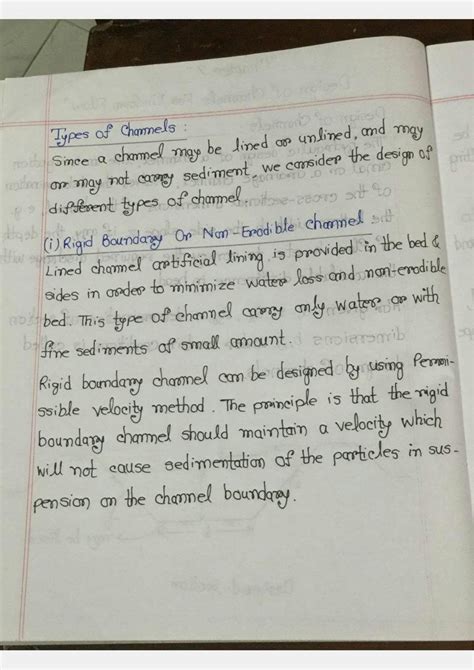 Types of Channels :
Since a channel may be lined or unlined, and may
or may not carry sediment, we consider the design of
different types of channel.
(i) Rigid Boundary Or Non Erodible Channel
Lined channel artificial lining is provided in the bed &
sides in order to minimize water loss and non-erodible
bed. This type of channel carry only water or with
fine sediments of small amount.
Rigid boundary channel can be designed by using Permi-
ssible velocity method. The principle is that the rigid
boundary channel should maintain a velocity which
will not cause sedimentation of the particles in sus-
pension on the channel boundary.